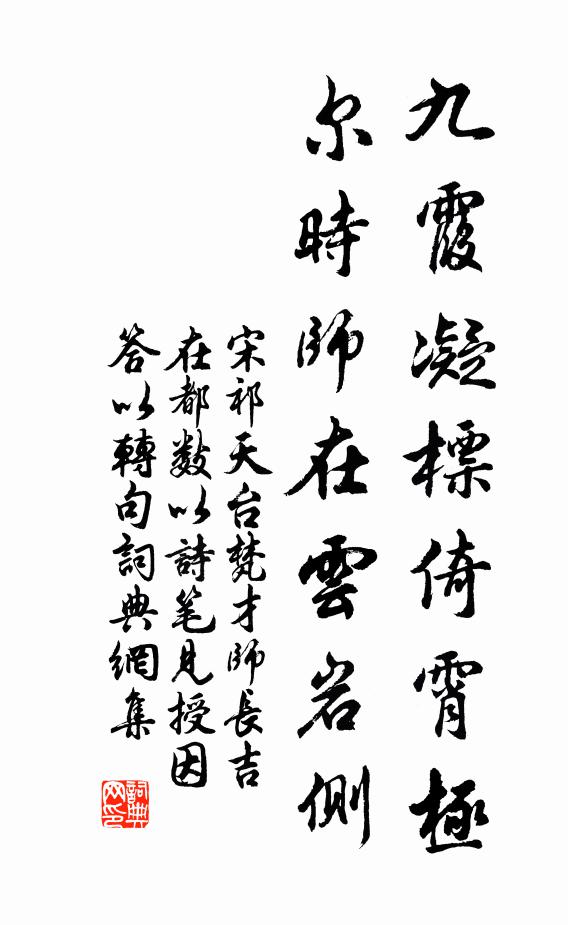 九霞凝標倚霄極
尔時師在雲岩側
宋祁天台梵才師長吉
在都数以詩笔見授因
答以轉句詞典網集
詞典网印